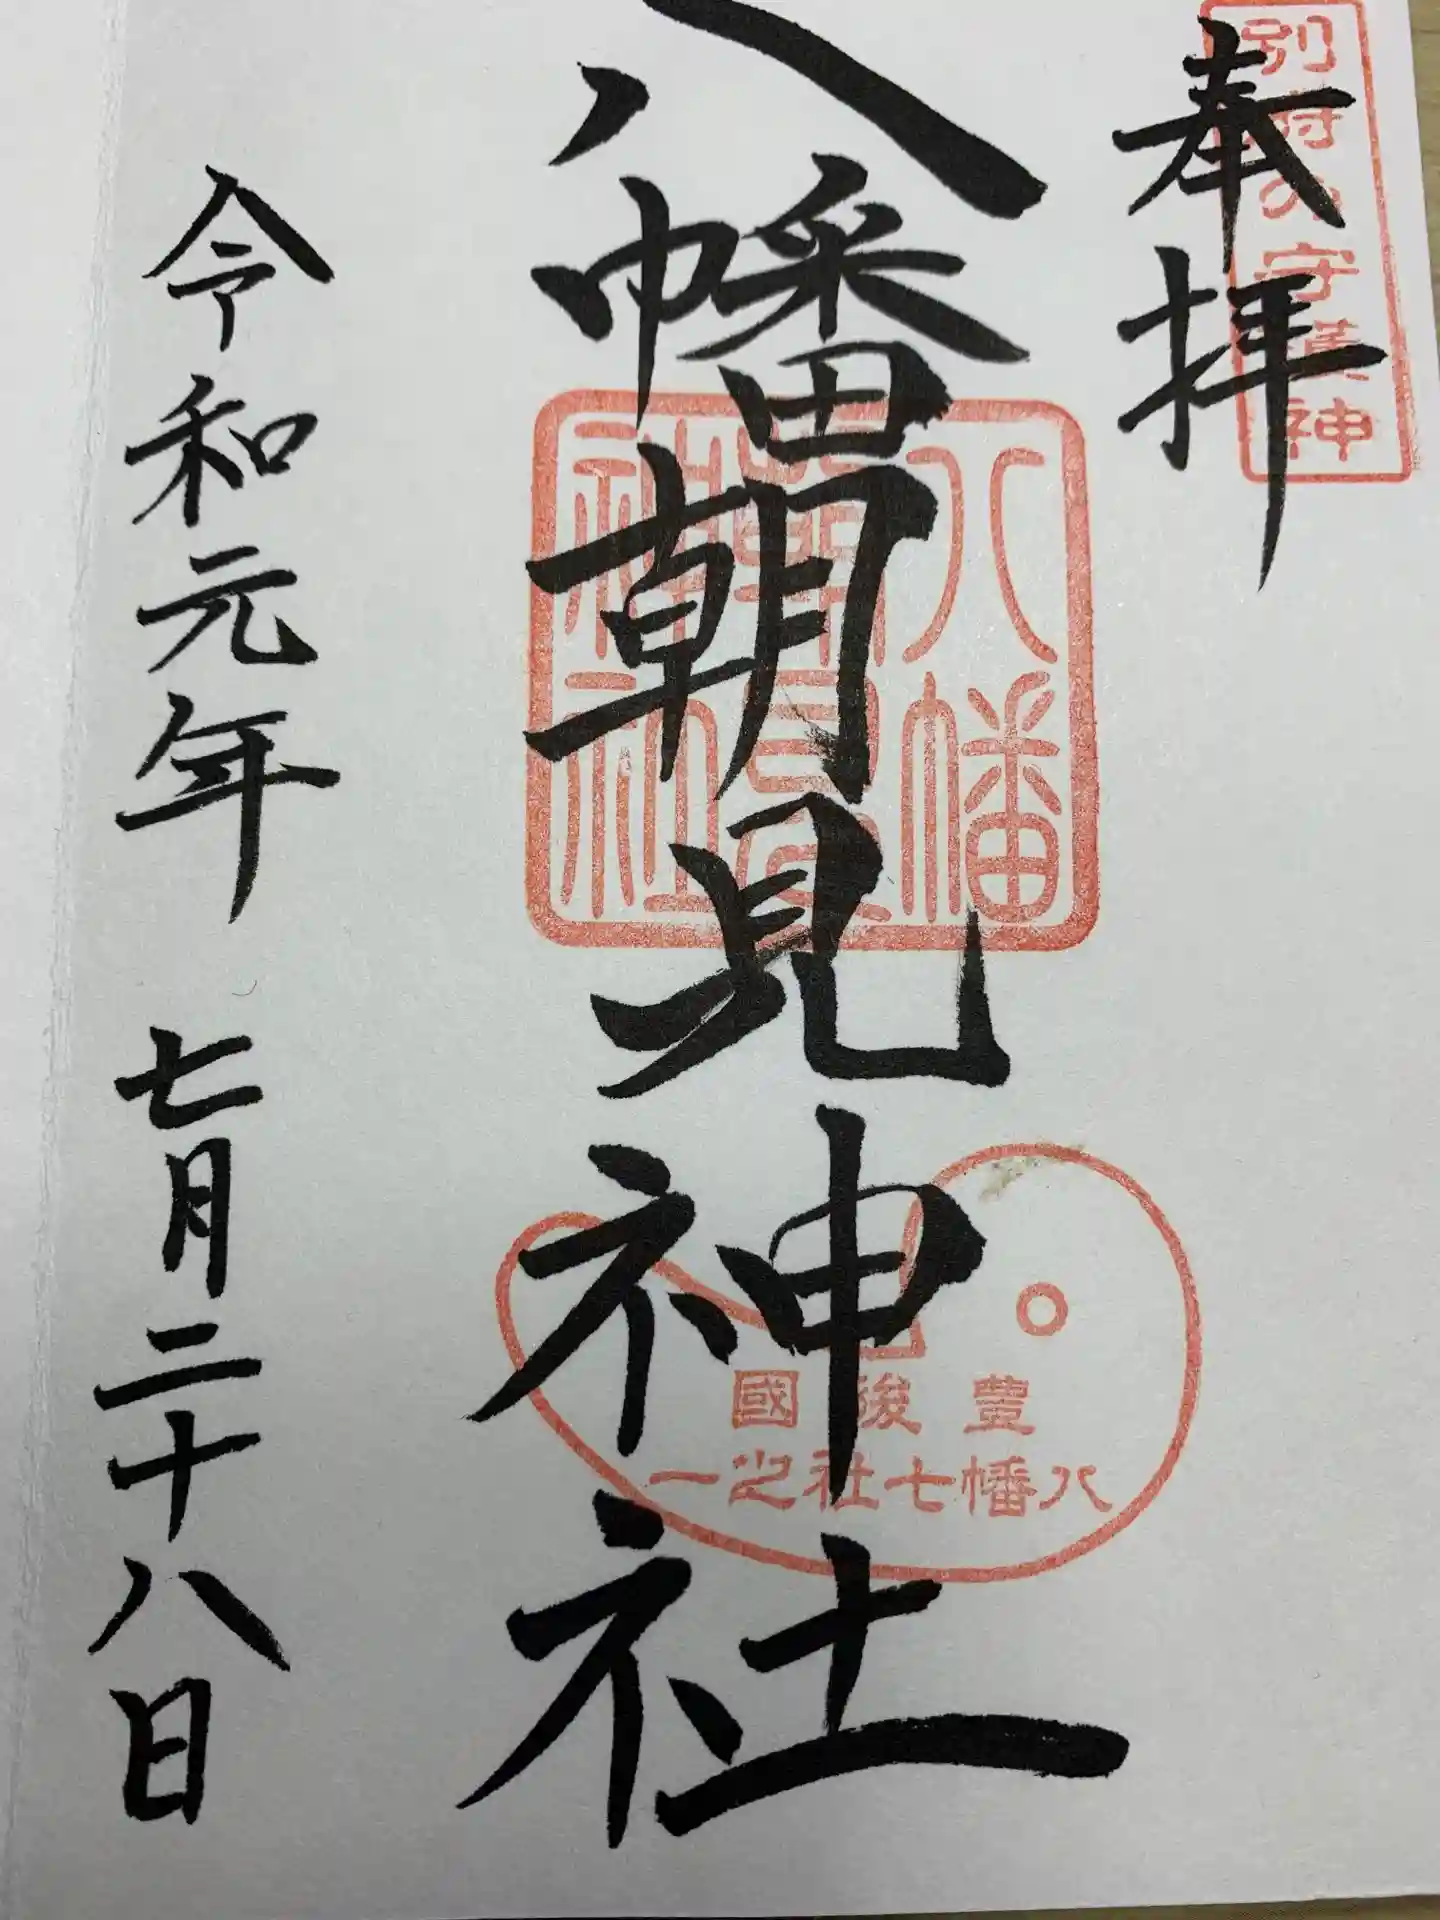 別府の守護神
奉拝
八幡朝見神社
八幡
朝見
神社
豊後國
八幡七社之一
令和元年 七月二十八日